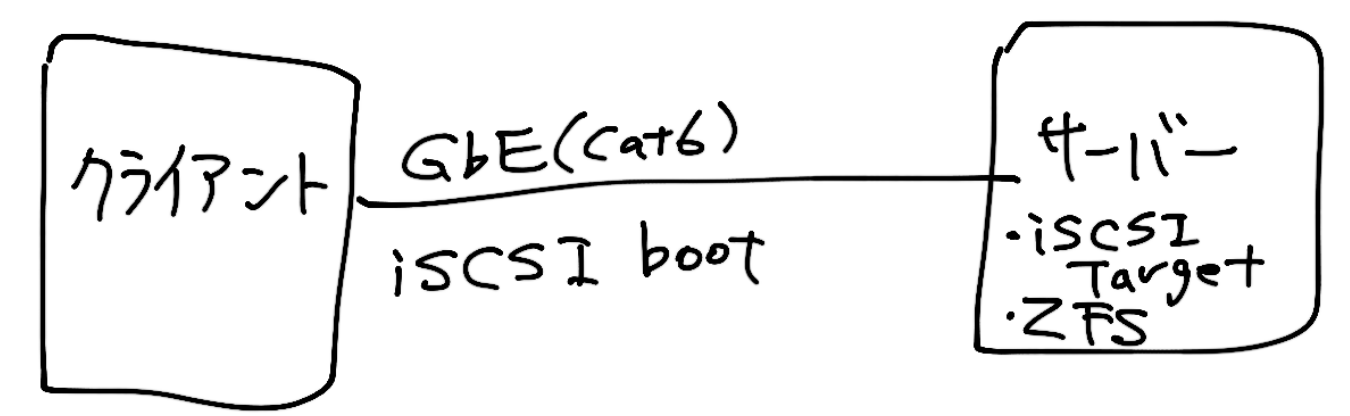 クライアント
GbE(Cat6)
iSCSI boot
サーバー
・iSCSI
Target
・ZFS